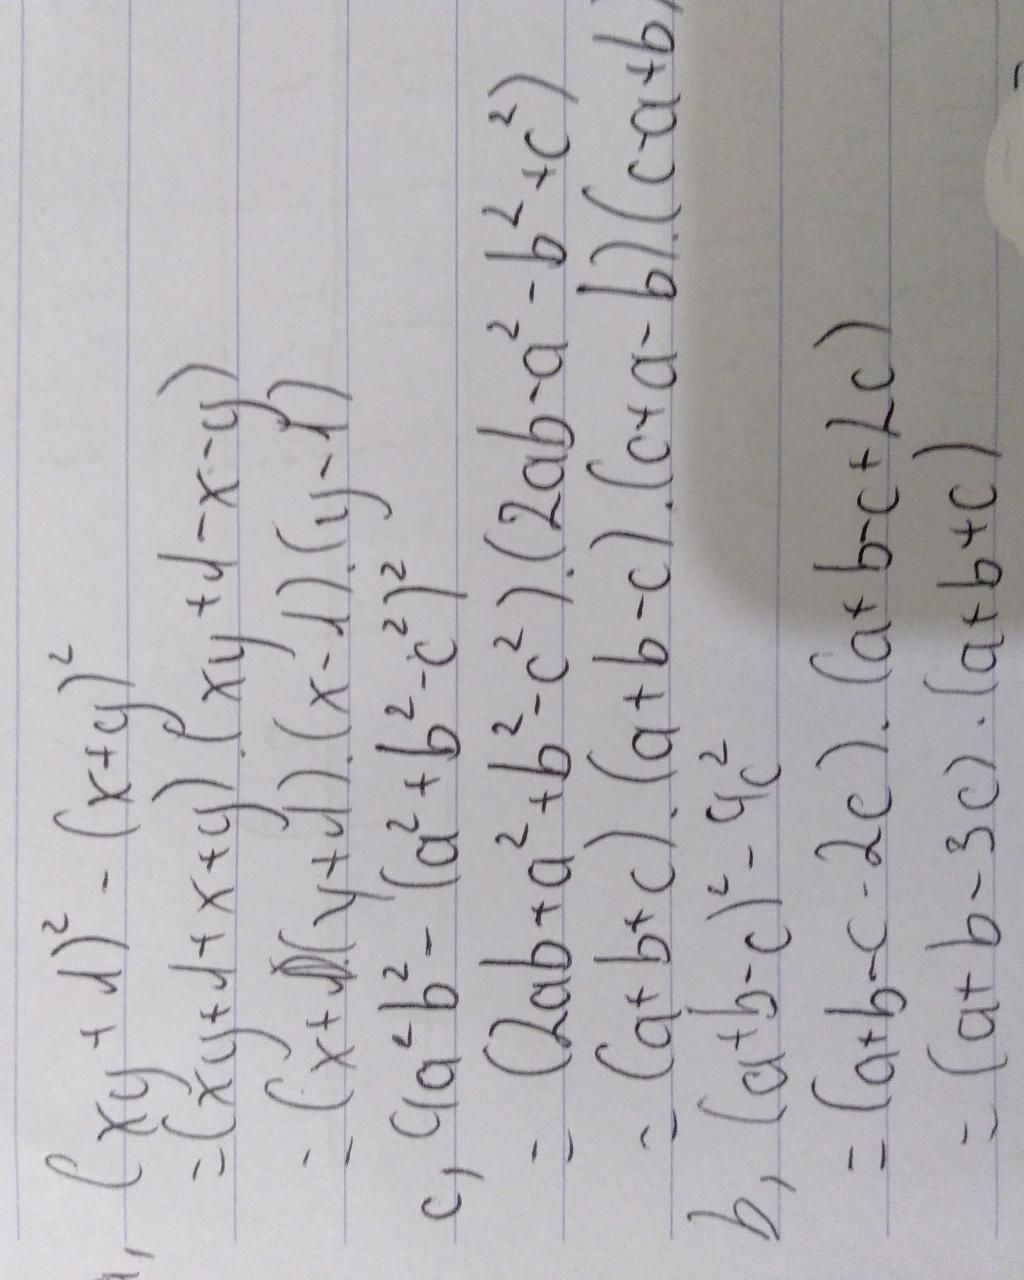 a, (xy+1)² - (x+y)²
=(xy+1+x+y).(xy+1-x-y)
= (x+1)(y+1).(x-1).(y-1)
c, 4a²b² - (a²+b²-c²)²
= (2ab+a²+b²-c²).(2ab-a²-b²+c²)
= (a+b+c).(a+b-c).(c+a-b).(c-a+b)
b, (a+b-c)² - 4c²
= (a+b-c-2c).(a+b-c+2c)
= (a+b-3c).(a+b+c)